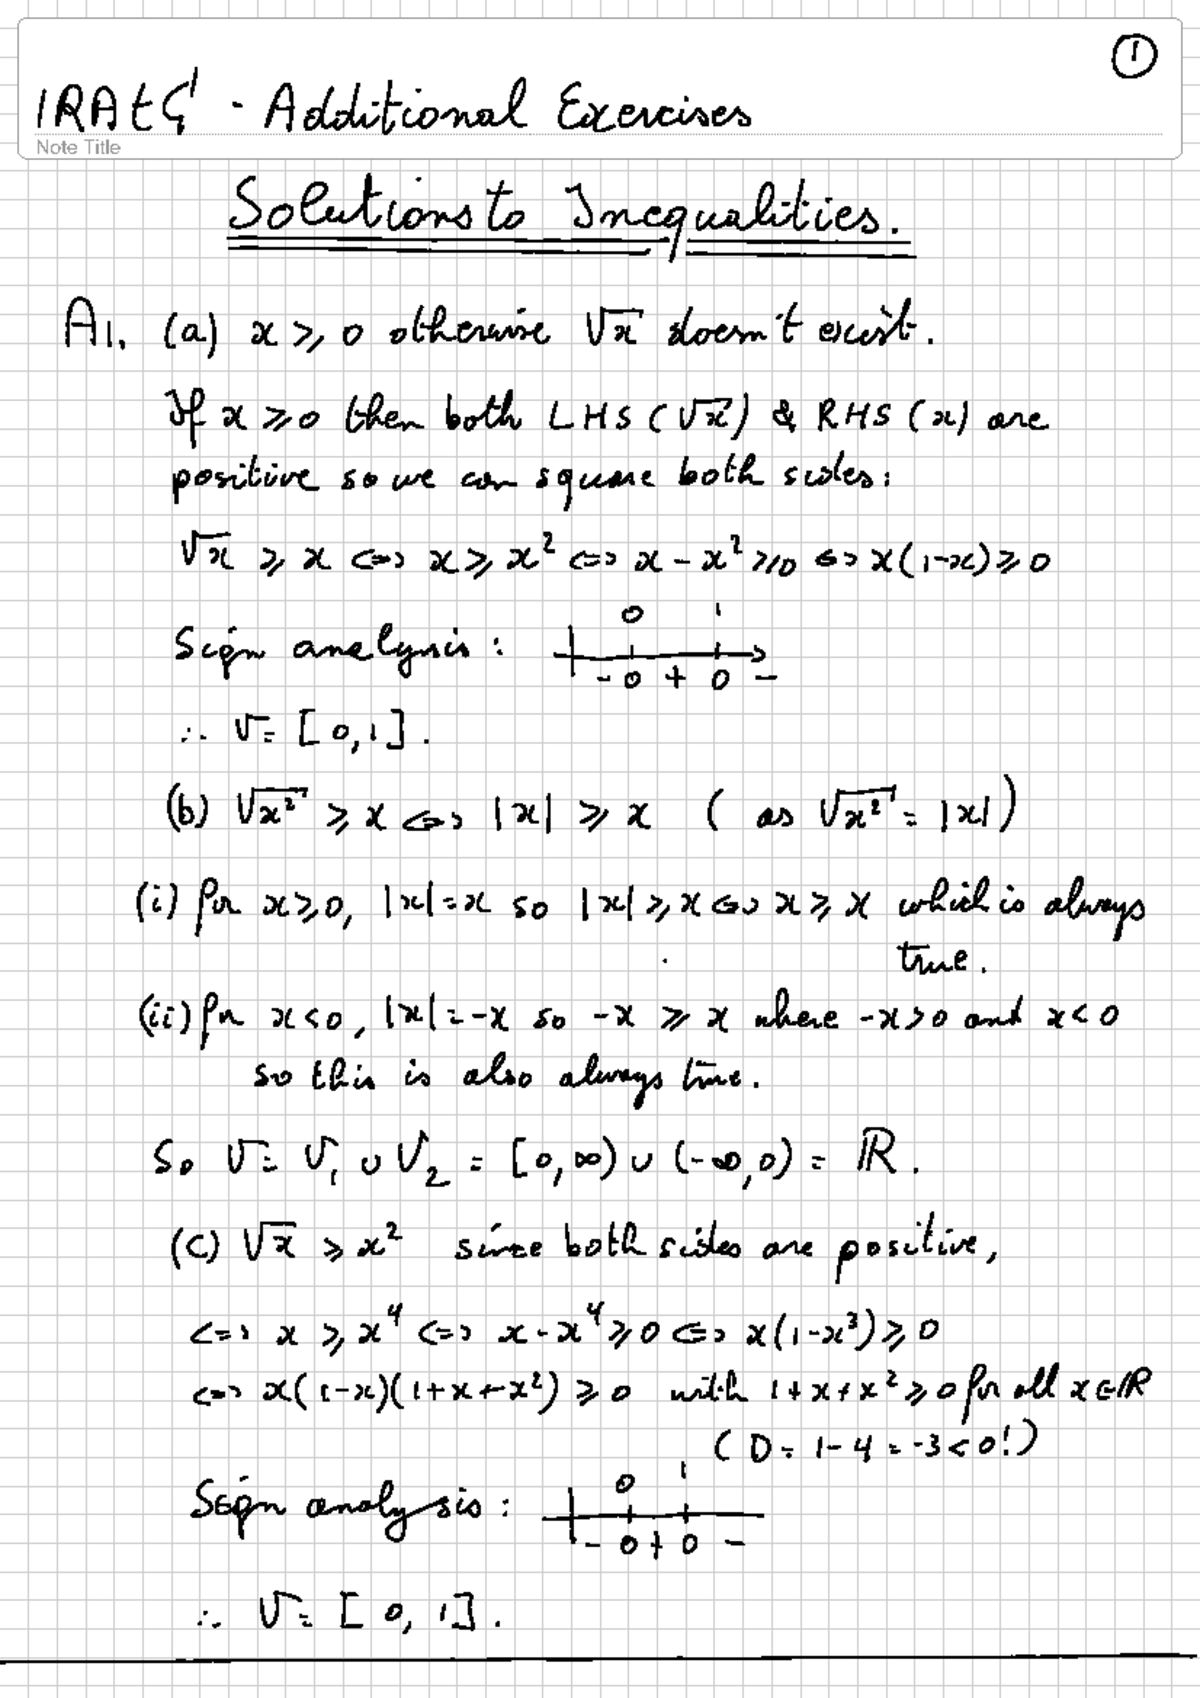 ①
IRAtG' - Additional Exercises
Note Title
Solutions to Inequalities.
A1. (a) x ≥ 0 otherwise √x doesn't exist.
If x ≥ 0 then both LHS (√x) & RHS (x) are
positive so we can square both sides:
√x ≥ x <=> x ≥ x² <=> x - x² ≥ 0 <=> x(1-x) ≥ 0
Sign analysis: 0 1
- 0 + 0 -
∴ V = [0,1].
(b) √x² ≥ x <=> |x| ≥ x ( as √x² = |x|)
(i) for x ≥ 0, |x| = x so |x| ≥ x <=> x ≥ x which is always
true.
(ii) for x < 0, |x| = -x so -x ≥ x where -x > 0 and x < 0
so this is also always true.
So V = V₁ ∪ V₂ = [0,∞) ∪ (-∞,0) = ℝ.
(c) √x ≥ x² since both sides are positive,
<=> x ≥ x⁴ <=> x - x⁴ ≥ 0 <=> x(1-x³) ≥ 0
<=> x(1-x)(1+x+x²) ≥ 0 with 1+x+x² ≥ 0 for all x ∈ ℝ
(D = 1-4 = -3 < 0!)
Sign analysis: 0 1
- 0 + 0 -
∴ V = [0, 1].